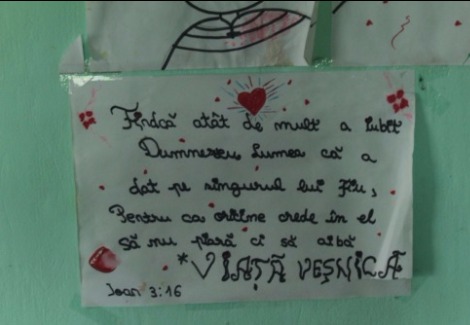 Findcă atât de mult a iubit
Dumnezeu lumea că a
dat pe singurul lui fiu,
Pentru ca oricine crede în el
să nu piară ci să aibă
*VIAȚĂ VEȘNICĂ
Ioan 3:16